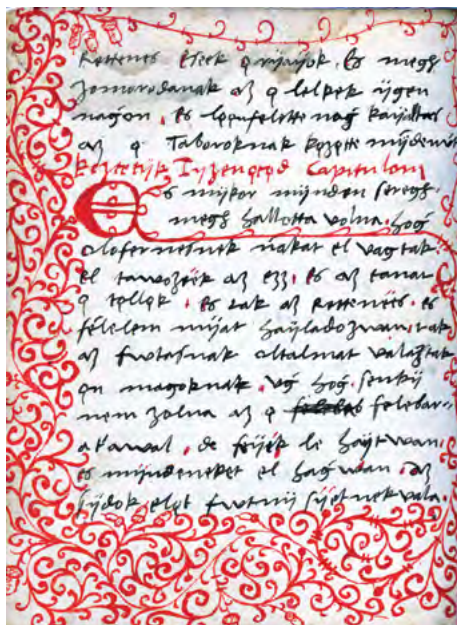 Rettenes esek ø rijaijok, Es megh
zomorodanak az ø lelkek ijgen
nagon, Es løn felette nag kaijaltas
az ø Taboroknak køzøtte mijdenwt
Tijzenøtød Capitulom
Es mijkor mijnden seregh
megh hallotta volna, hog
olofernesnek nakat el vagtak
el tawozeek az ezz, es az tanac
ø tølløk, es cak az rettenees, es
felelem mijat haijladozwan, cak
az fwtasnak oltalmat valaztak
øn magoknak, vg hog senkij
nem zolna az ø felebar-
atawal, de feijek le haijtwan,
es mijndeneket el hagwan, az
sijdok eløt fwtnij sijetnek vala.